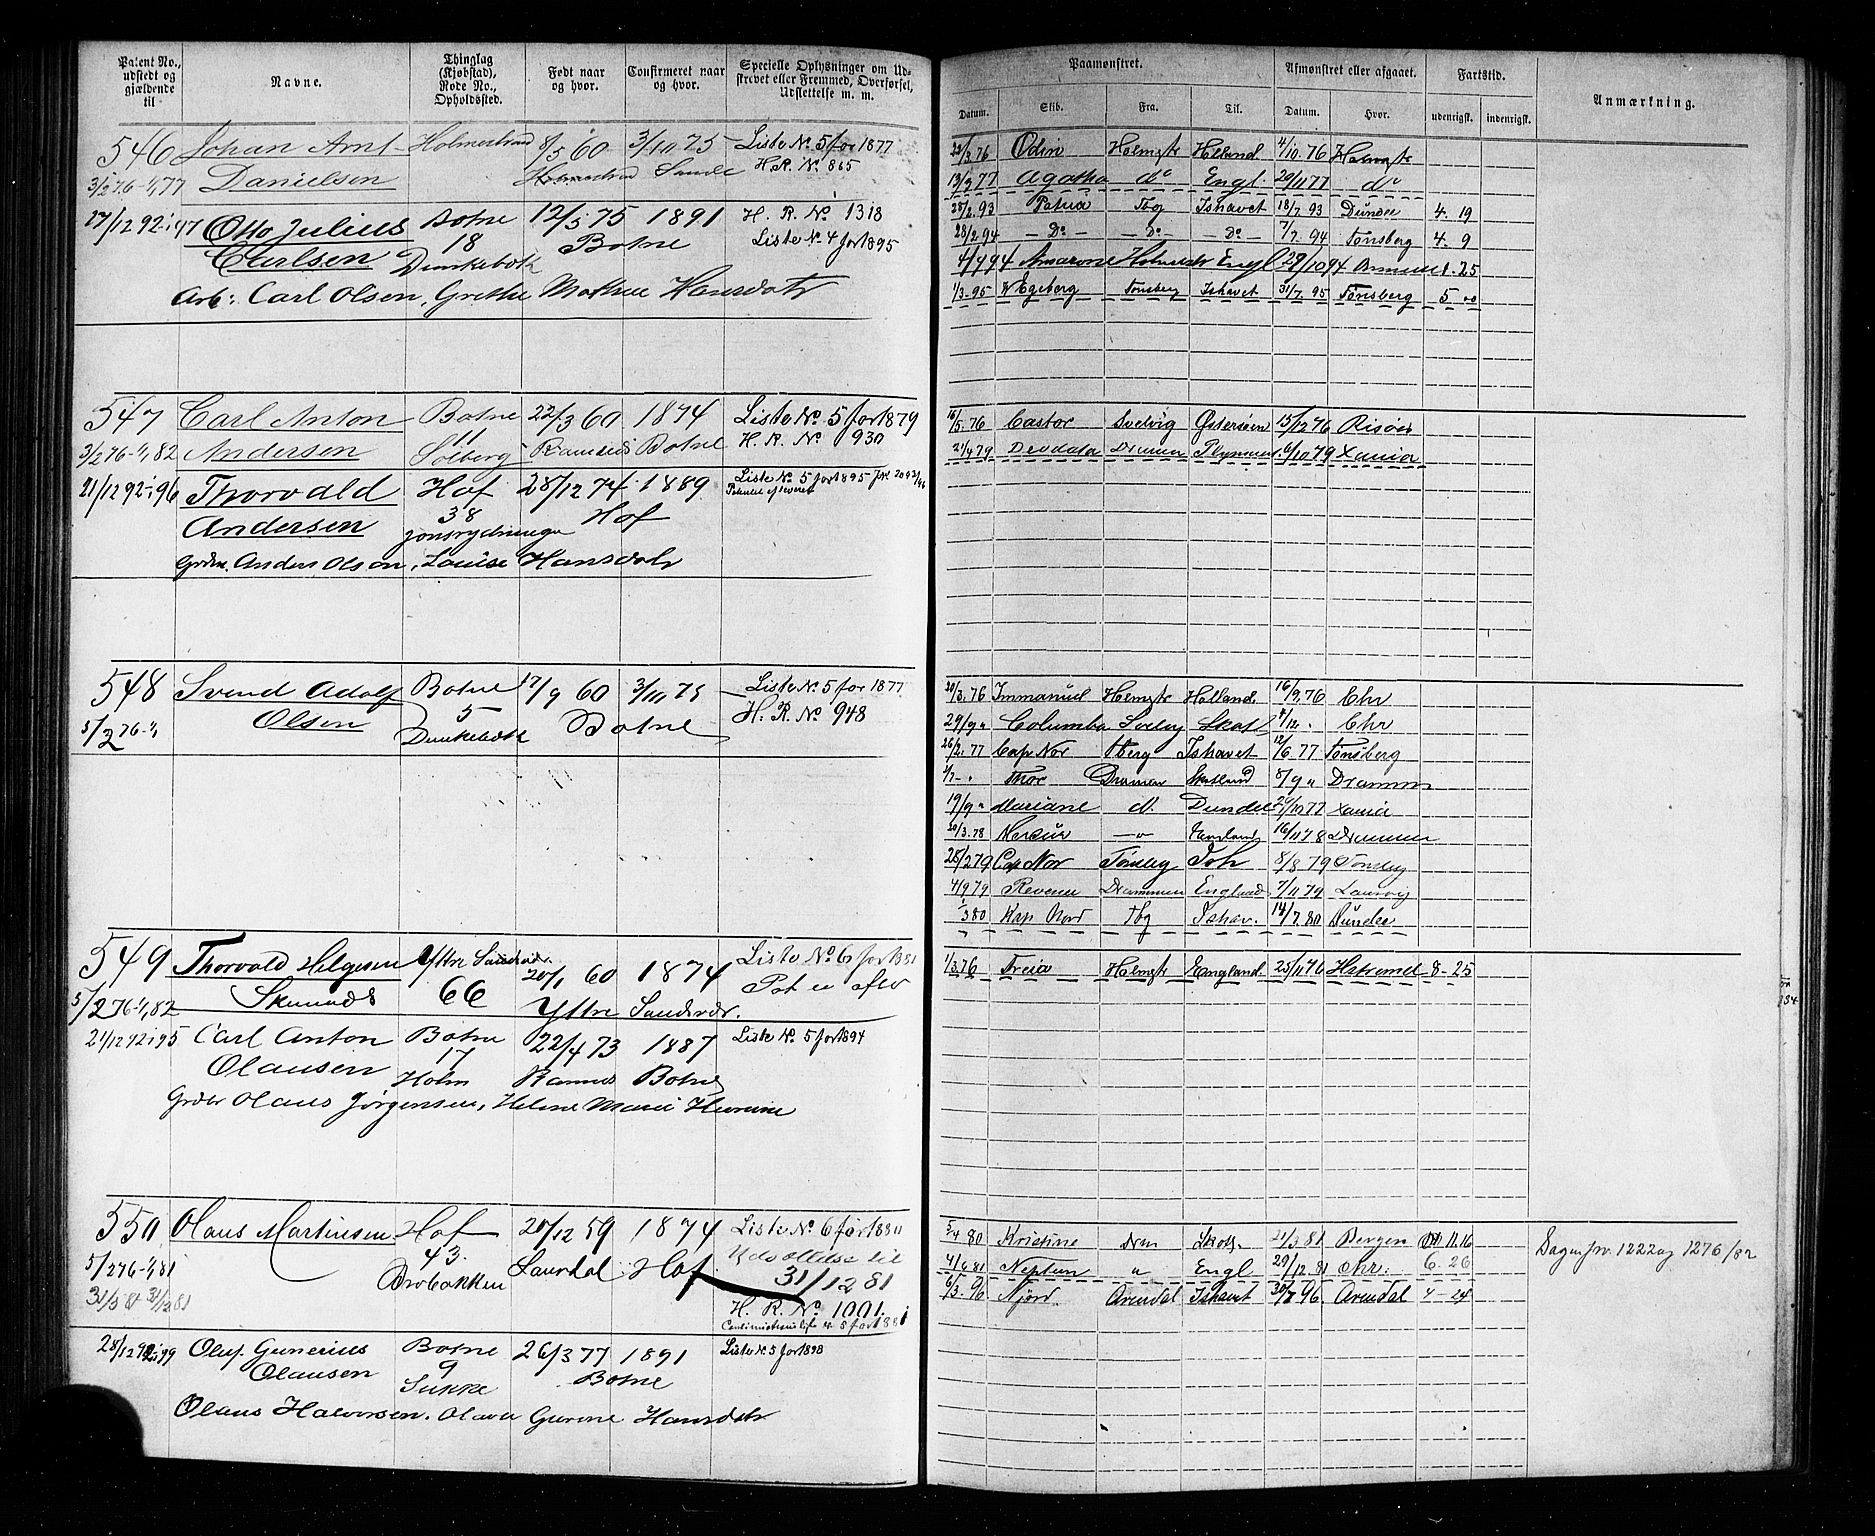 Patent No., udstedt og gjældende til
Navne.
Thinglag (Kjøbstad), Rode No., Opholdssted.
Født naar og hvor.
Confirmeret naar og hvor.
Specielle Oplysninger om Udskrevet eller Fremmed, Overførsel, Udslettelse m. m.
Paamønstret.
Afmønstret eller afgaaet.
Fartstid.
Anmærkning.
Datum. Skib. Fra. Til. Datum. Hvor. udenrigsk. indenrigsk.
546 Johan Arnt Holmestrand 8/5 60 3/10 75 Liste No. 5 for 1877
3/2 76-1/1 77 Danielsen Holmestrand Sande H.R. No. 865
27/12 92-1/1 97 Otto Julius Botne 12/5 75 1891 H. R. No 1318
Carlsen 18 Botne Liste No. 4 for 1895
Arb: Carl Olsen, Grethe Mathea Hansdatr
547 Carl Anton Botne 22/3 60 1874 Liste No. 5 for 1879
3/2 76-1/1 82 Andersen 11 Solberg Ramnes Botne H. R. No 930
21/12 92-1/1 96 Thorvald Hof 28/12 74 1889 Liste No 5 for 1895
Andersen 38 Hof
Grdbr. Anders Olsen, Louise Hansdatr
548 Svend Adolf Botne 17/9 60 3/10 75 Liste No. 5 for 1877
5/2 76-1/1 Olsen 5 Botne H. R. No 948
549 Thorvald Helgesen Yttre Sandsvær 20/1 60 1874 Liste No 6 for 1881
5/2 76-1/1 82 66 Yttre Sandsvær. Pat er aflev
21/12 92 95 Carl Anton Botne 22/4 73 1887 Liste No. 5 for 1894
Olausen 17 Holm Ramnes Botne
Grdbr Olaus Jørgensen, Helene Marie
550 Olaus Martinsen Hof 20/12 59 1874 Liste No. 6 for 1880
5/2 76-1/1 81 43. Laurdal Hof Udsættelse til
31/3 81 Brobakken 31/12 81
H. R. No. 1001.
28/12 92 99 Oluf Gunerius Botne 26/3 77 1891 Liste No. 5 for 1898
Olausen 9 Botne
Sukke
Olaus Halvorsen. Olava Gurine Hansdatr
22/3 76 Odin Holmstr Holland 4/10 76 Holmstr
13/3 77 Agatha do Engl. 20/11 77 do
25/2 93 Patria Tbg Ishavet 18/7 93 Dundee 4. 19
28/2 94 - Do - - Do - - Do - 7/7 94 Tønsberg 4. 9
1/3 95 Egeberg Tønsberg Ishavet 31/7 95 Tønsberg 5 00
16/5 76 Castor Svelvig Østersøen 13/12 76 Risøer
21/4 79 Deodata Drmen 6/10 79 Xania
20/3 76 Immanuel Holmstr Holland. 16/9 76 Chr
29/9 " Columbia Svelvig Skotl /12 . Chr
26/2 77 Cap Nor Tberg Ishavet 12/6 77 Tønsberg
Thor Drammen Skotland 8/9 " Drammen
19/9 " Mariane do. Dundee 77 Xania
20/3 78 England 16/11 78 Drammen
25/2 79 Cap Nor Tønsbg Ish 8/8 79 Tønsbg
4/9 79 Revenu Drammen England 7/11 79 Laurvig
3 80 Kap Nord Tbg Ishav. 14/7 80 Dundee
1/3 76 Freia Holmstr England. 25/11 76 8-25
5/4 80 Kristine Drm Skotl. 21/3 81 Bergen 11.16
4/6 81 Neptun " Engl 29/12 81 Chr: 6.26
6/3 96 Njord Arendal Ishavet 30/7 96. Arendal 4-24
Sagen jr. 1222 og 1276/82